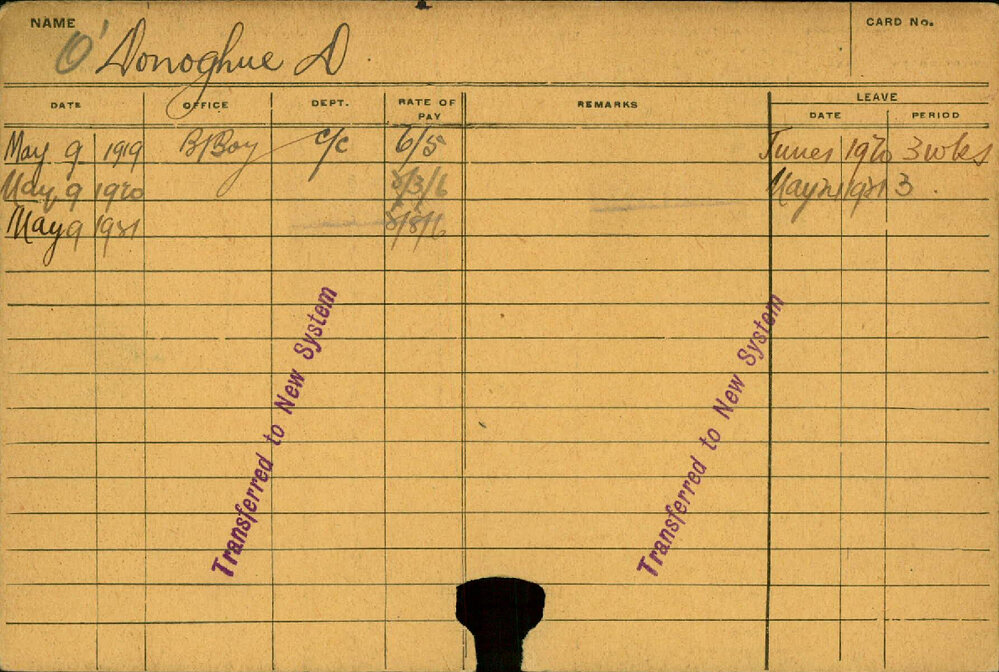 NAME CARD No.
O'Donoghue D.
DATE OFFICE DEPT. RATE OF PAY REMARKS LEAVE
DATE PERIOD
May 9 1919 B/Boy C/C 6/5 June 1920 3 wks
May 9 1920 8/3/6 May 21 1921 3
May 9 1921 8/8/6
Transferred to New System
Transferred to New System